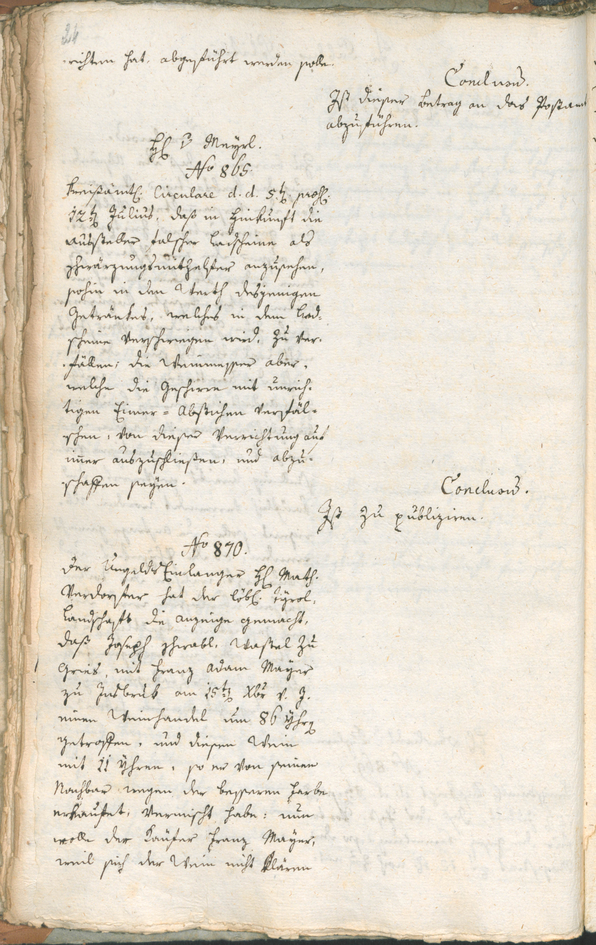 26
richten hat, abgeführt werden solle.
Conclusū.
Ist dieser Betrag an das Postamt
abzuführen.
H. v. Mayrl.
No 865.
Kreisämtl. Circulare d. d. 5. prs.
12t Julius, daß in Hinkunft die
Aussteller falscher Ladscheine als
Schwärzungsmithelfer anzusehen,
sohin in den Werth desjenigen
Getränkes, welches in dem Lad-
scheine verschwiegen wird, zu ver-
fällen; die Weinmesser aber,
welche die Geschirre mit unrich-
tigen Eimer-Abstichen verfäl-
schen, von dieser Verrichtung auf
immer auszuschließen, und abzu-
schaffen seyen.
Conclusū.
Ist zu publiziren.
No 870.
Der Ungelds Einlanger H. Math.
Verdorfer hat der löbl. Tyrol.
Landschaft die Anzeige gemacht,
daß Joseph Schrabl, Wastel zu
Gries, mit Franz Adam Mayer
zu Insbruk am 15t Xbr v. J.
einen Weinhandel um 86 Yhrn
getroffen, und diesen Wein
mit 11 Yhren, so er von seinen
Nachbar wegen der besseren Farbe
erkaufet, vermischt habe: nun
wolle der Käufer Franz Mayer,
weil sich der Wein nicht klären